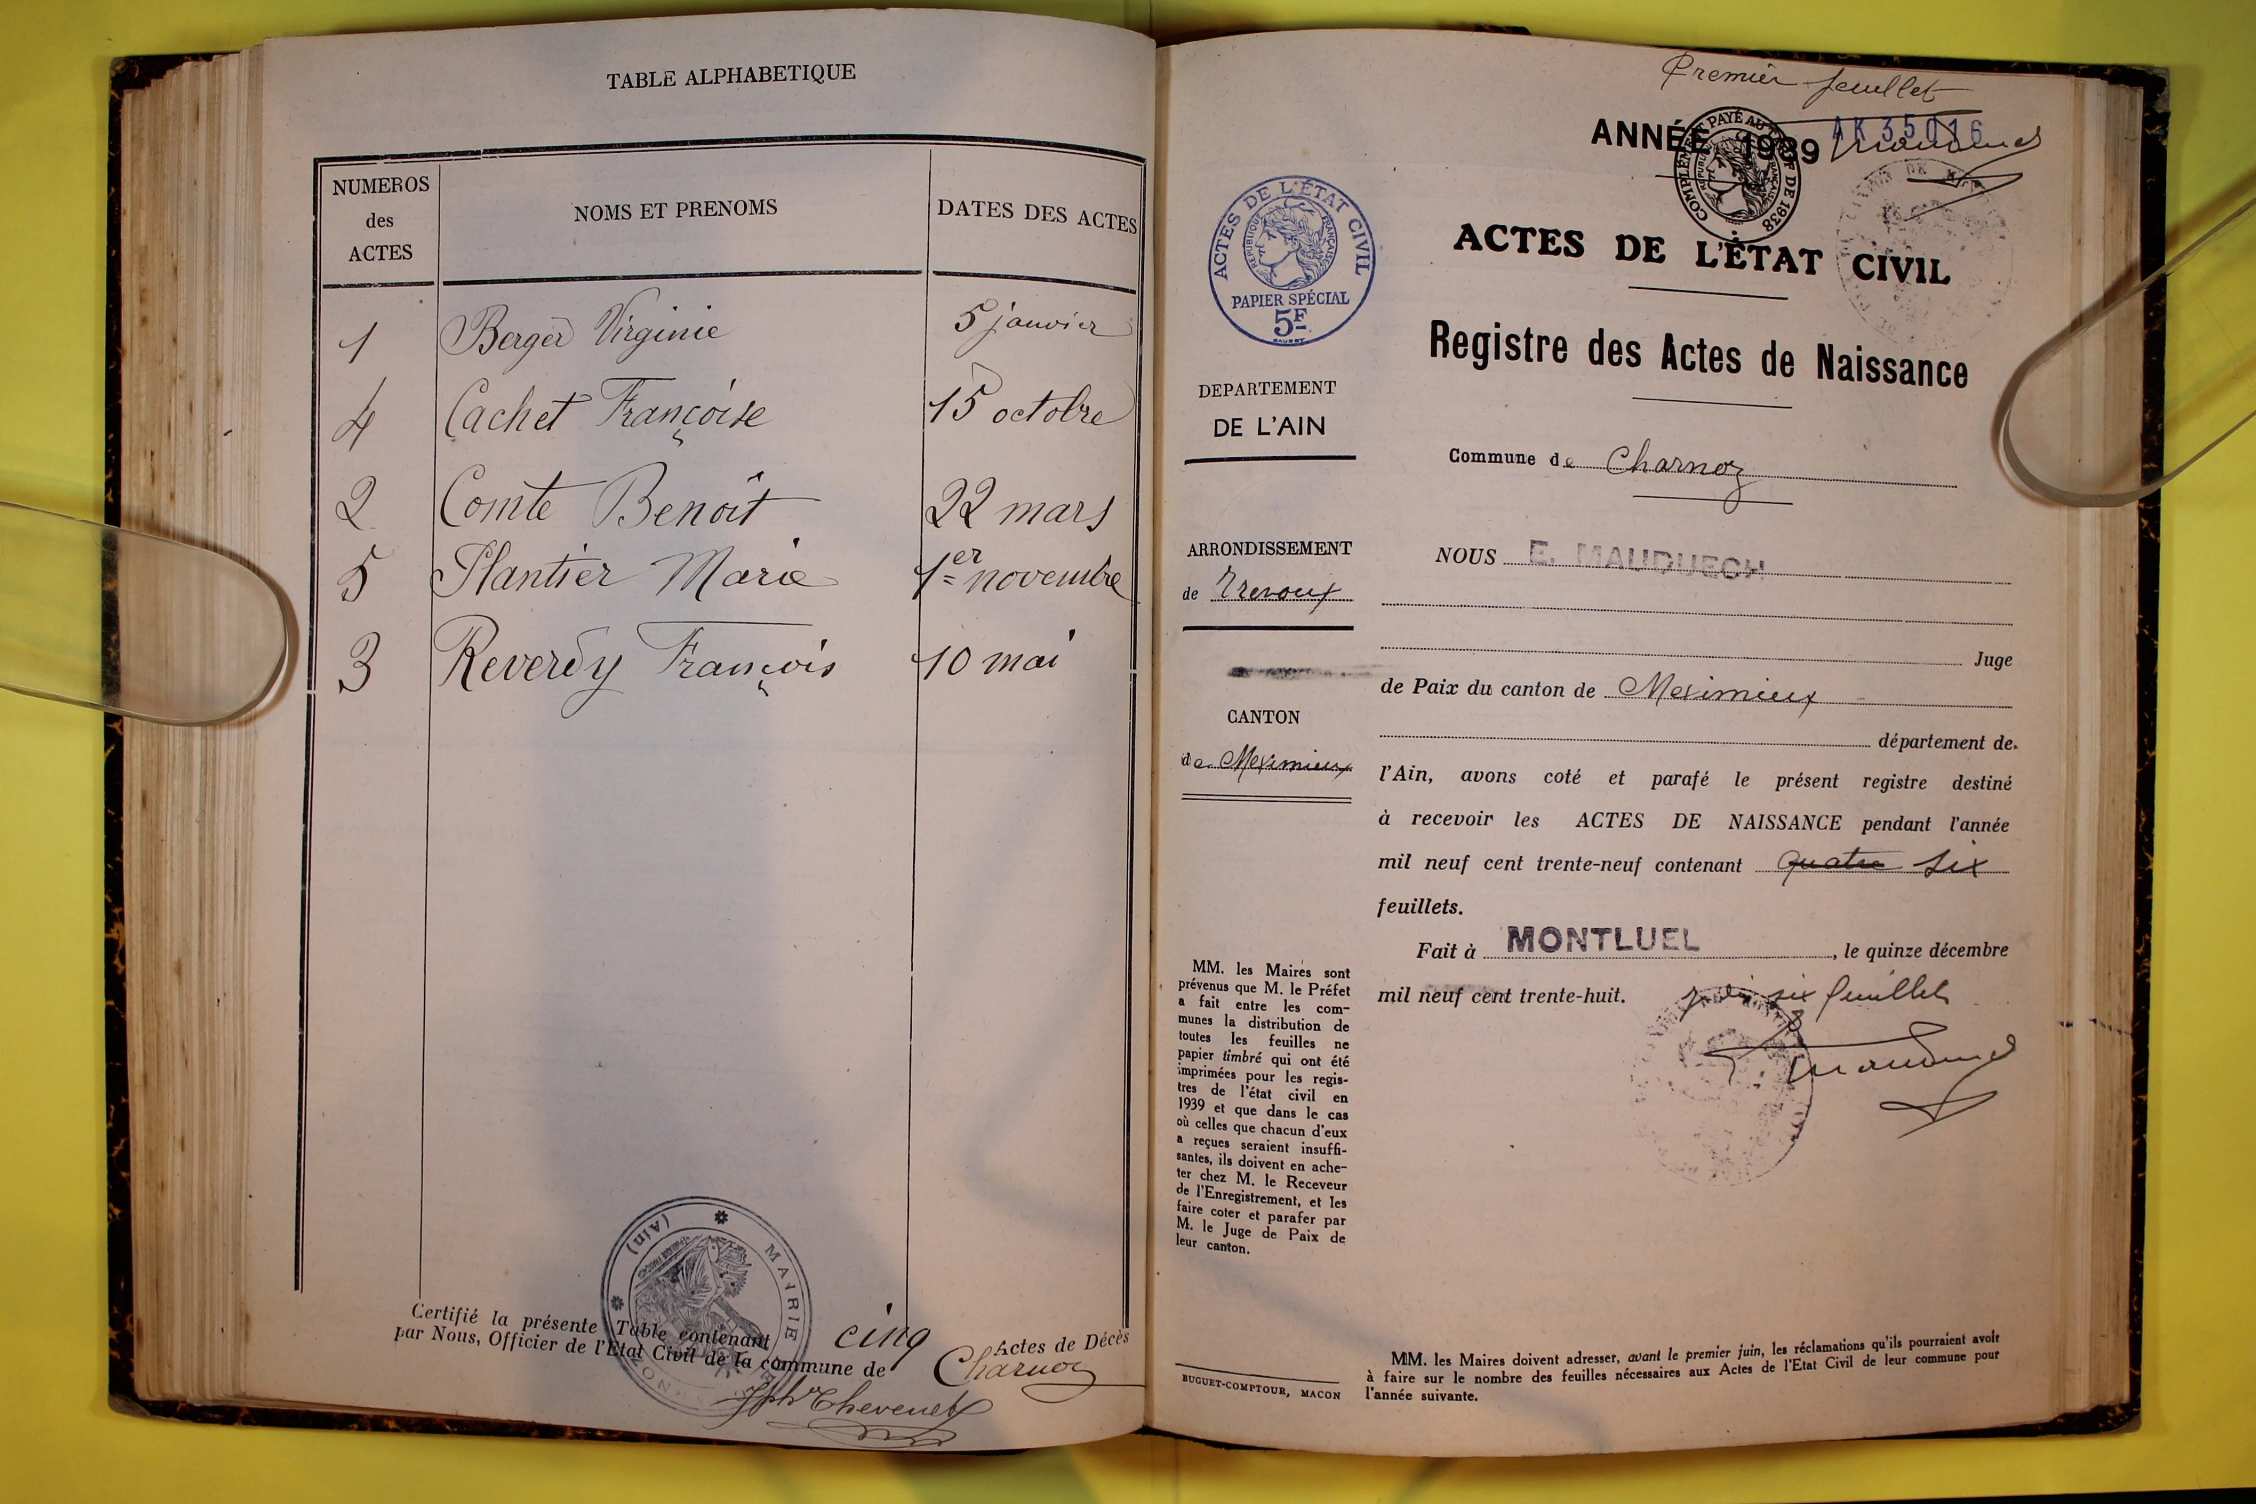 TABLE ALPHABETIQUE
NUMEROS
des
ACTES
NOMS ET PRENOMS
DATES DES ACTES
1 Berger Virginie 5 janvier
4 Cachet Françoise 15 octobre
2 Comte Benoît 22 mars
5 Plantier Marie 1er novembre
3 Reverdy François 10 mai
Certifié la présente Table contenant cinq Actes de Décès
par Nous, Officier de l'Etat Civil de la commune de Charnoz
MAIRIE DE CHARNOZ (Ain)
Jph Thevenet
Premier feuillet
ANNÉE 1939
AK35016
COMPLÉMENT PAYÉ AU TARIF DE 1938
RÉPUBLIQUE FRANÇAISE
ACTES DE L'ÉTAT CIVIL
RÉPUBLIQUE FRANÇAISE
PAPIER SPÉCIAL
5F
ACTES DE L'ÉTAT CIVIL
Registre des Actes de Naissance
DEPARTEMENT
DE L'AIN
Commune de Charnoz
ARRONDISSEMENT
de Trevoux
CANTON
de Meximieux
NOUS E. MAUDUECH
Juge
de Paix du canton de Meximieux
département de
l'Ain, avons coté et parafé le présent registre destiné
à recevoir les ACTES DE NAISSANCE pendant l'année
mil neuf cent trente-neuf contenant quatre six
feuillets.
Fait à MONTLUEL, le quinze décembre
mil neuf cent trente-huit.
six feuillets
MM. les Maires sont
prévenus que M. le Préfet
a fait entre les com-
munes la distribution de
toutes les feuilles ne
papier timbré qui ont été
imprimées pour les regis-
tres de l'état civil en
1939 et que dans le cas
où celles que chacun d'eux
a reçues seraient insuffi-
santes, ils doivent en ache-
ter chez M. le Receveur
de l'Enregistrement, et les
faire coter et parafer par
M. le Juge de Paix de
leur canton.
BUGUET-COMPTOUR, MACON
MM. les Maires doivent adresser, avant le premier juin, les réclamations qu'ils pourraient avoir
à faire sur le nombre des feuilles nécessaires aux Actes de l'Etat Civil de leur commune pour
l'année suivante.